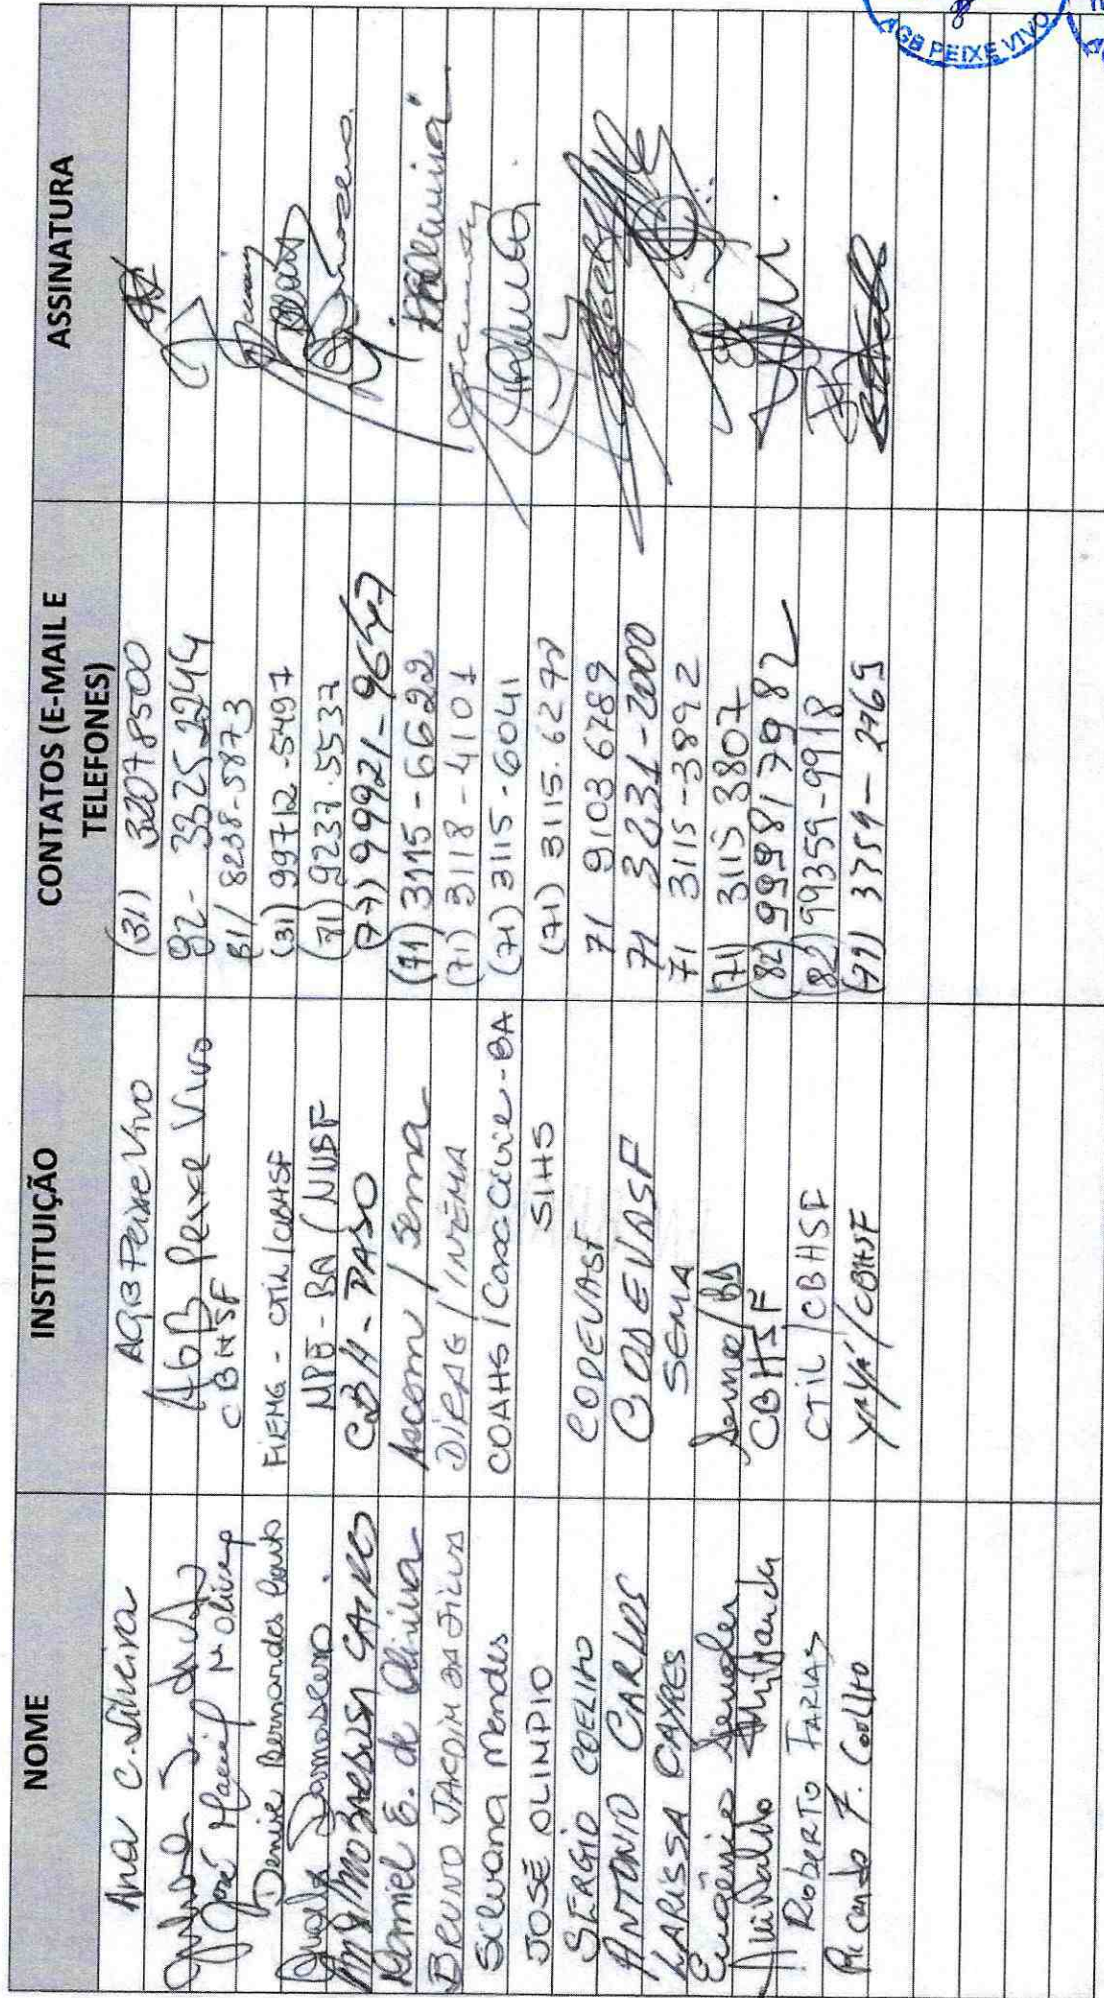 NOME INSTITUIÇÃO CONTATOS (E-MAIL E TELEFONES) ASSINATURA
Ana C. Silveira AGB Peixe Vivo (31) 32078500
AGB Peixe Vivo 92- 3325 2244
José Maciel N Oliveira CBHSF 81/ 8238-5873
Denise Bernardes Couto FIEMG - CTIL/CBHSF (31) 99712-5497
Damasceno. MPE-BA (NUSF (71) 9237.5533
BARBOSA CBH-PASO (77) 99921-9647
Daniel E. de Oliveira Ascom / Sema (71) 3115-6622
BRUNO JACOIM DA SILVA DIRAG / INEMA (71) 3118-4101
Silvana Mendes COAHS / Casa Civil-BA (71) 3115-6041
JOSÉ OLIMPIO SIHS (71) 3115.6277
SÉRGIO COELHO CODEVASF 71 91036789
ANTONIO CARLOS CODEVASF 71 3231-2000
LARISSA CAYRES SEMA 71 3115-3892
Eugênio Sema/BA (71) 3115 3807
Anivaldo Miranda CBHSF (82) 999817998 2
ROBERTO FARIAS CTIL / CBHSF (82) 99359-9918
Ricardo F. Coelho /CBHSF 3754-2769
AGB PEIXE VIVO